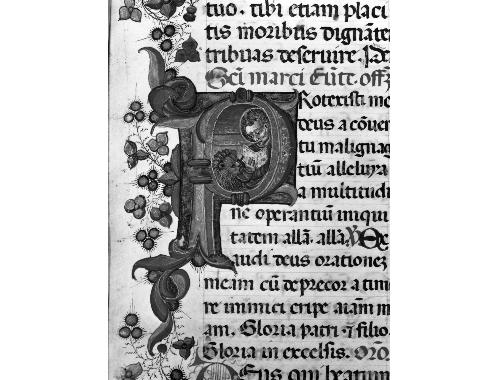 tuo. tibi etiam placi
tis moribus dignāte
tribuas deseruire. P. de
Sc̄i marci Eūte. offō
Protexisti me
deus a cōuen
tu malignā
tiū alleluya
a multitudi
ne operantiū iniqui
tatem allā. allā. P̄s Ex
audi deus orationez
meam cū deprecor a timo
re inimici eripe aiām m
am. Gloria patri ⁊ filio.
Gloria in excelsis. Oro.
Deus qui beatum